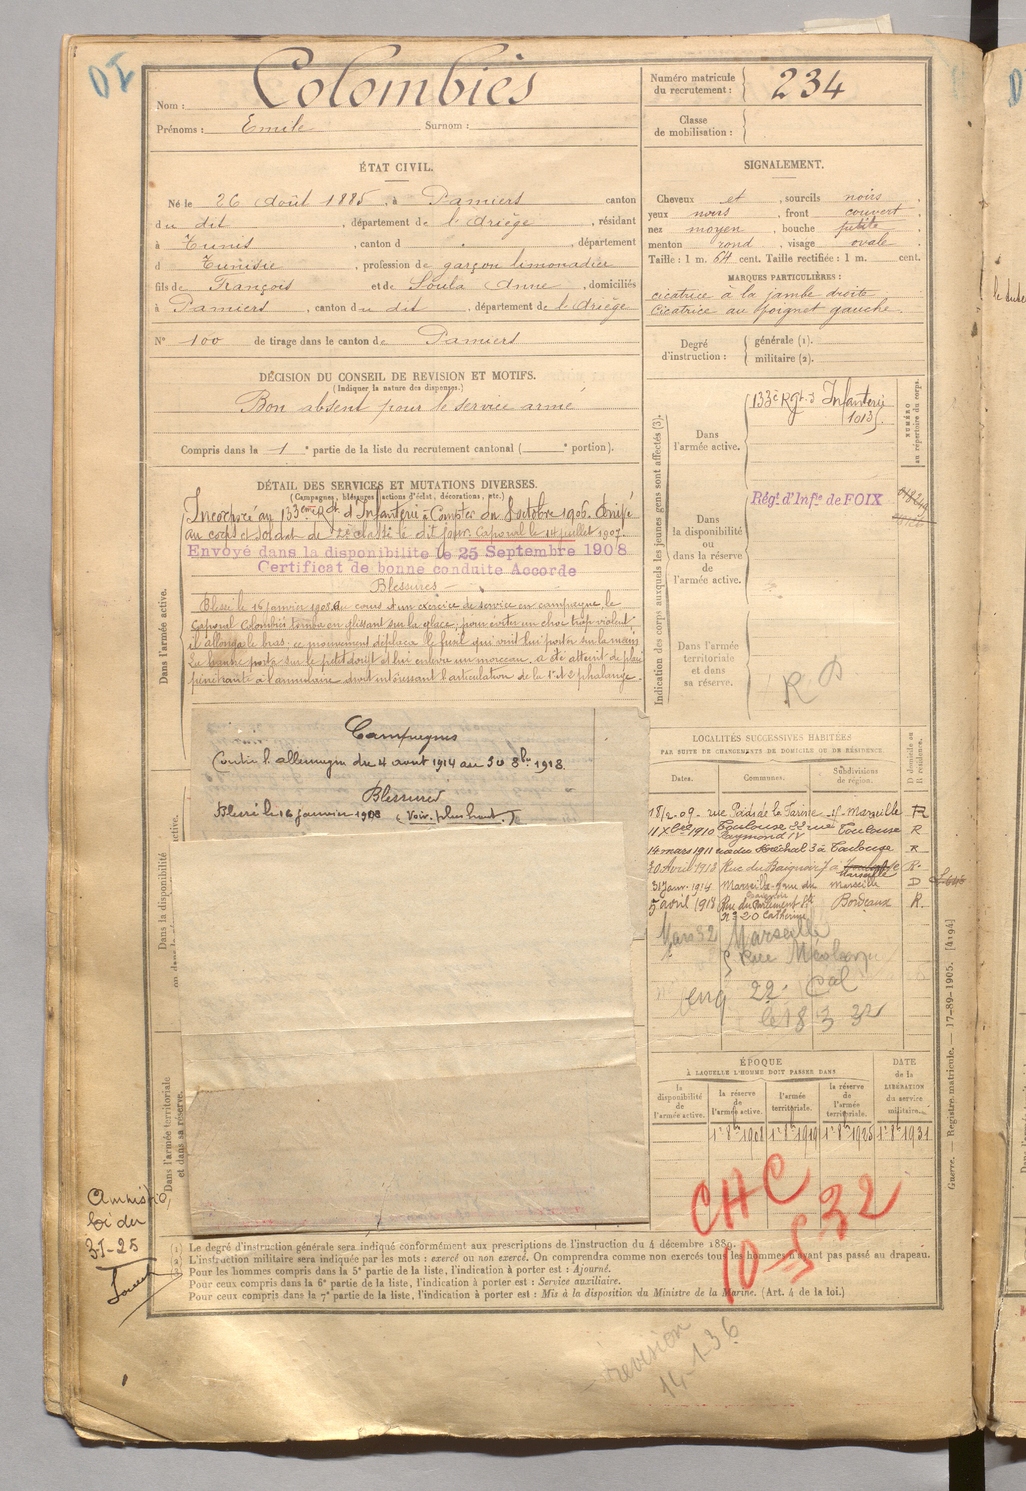 Nom : Colombiès
Prénoms : Emile Surnom :
Numéro matricule du recrutement : 234
Classe de mobilisation :
ÉTAT CIVIL.
Né le 26 Août 1885, à Pamiers canton
du dit, département de l'Ariège, résidant
à Tunis, canton d , département
d Tunisie, profession de garçon limonadier
fils de François et de Soula Anne, domiciliés
à Pamiers, canton du dit, département de l'Ariège
N° 100 de tirage dans le canton de Pamiers
SIGNALEMENT.
Cheveux et, sourcils noirs,
yeux noirs, front couvert,
nez moyen, bouche petite,
menton rond, visage ovale
Taille : 1 m. 64 cent. Taille rectifiée : 1 m. cent.
MARQUES PARTICULIÈRES :
cicatrice à la jambe droite
cicatrice au poignet gauche.
Degré d'instruction : générale (1).
militaire (2).
DÉCISION DU CONSEIL DE REVISION ET MOTIFS.
(Indiquer la nature des dispenses.)
Bon absent pour le service armé
Compris dans la 1e partie de la liste du recrutement cantonal ( e portion).
DÉTAIL DES SERVICES ET MUTATIONS DIVERSES.
(Campagnes, blessures, actions d'éclat, décorations, etc.)
Dans l'armée active.
Incorporé au 133eme Rgt. d'Infanterie à Compter du 8 octobre 1906. Arrivé
au corps et soldat de 2e classe le dit jour. Caporal le 14 juillet 1907.
Envoyé dans la disponibilité le 25 Septembre 1908
Certificat de bonne conduite Accordé
Blessures
Blessé le 16 janvier 1908 au cours d'un exercice de service en campagne, le
Caporal Colombiès tomba en glissant sur la glace; pour éviter un choc trop violent,
il allongea le bras; ce mouvement déplaça le fusil qui vint lui porter sur la main
petit doigt et lui enleva un morceau, a été atteint de plaie
pénétrante à l'annulaire droit intéressant l'articulation de la 1e et 2 phalange.
Campagnes
Contre l'allemagne du 4 aout 1914 au 30 8bre 1918.
Blessures
Blessé le 16 janvier 1908 (Voir plus haut.)
Dans la disponibilité
Dans l'armée territoriale
et dans sa réserve.
Indication des corps auxquels les jeunes gens sont affectés (3).
NUMÉRO au répertoire du corps.
Dans l'armée active.
133e Rgt. d'Infanterie
1013
Dans la disponibilité ou dans la réserve de l'armée active.
Régt. d'Infie de FOIX
Dans l'armée territoriale et dans sa réserve.
R D
LOCALITÉS SUCCESSIVES HABITÉES
PAR SUITE DE CHANGEMENTS DE DOMICILE OU DE RÉSIDENCE.
Dates. Communes. Subdivisions de région. D domicile ou R résidence.
18/2.09. Marseille R
1910 Toulouse 22 rue Raymond IV Toulouse R
14 mars 1911 3 à Toulouse R
30 Avril 1913 Rue du Baignoir 7 à Marseille R
31 Janv. 1914 Marseille Marseille D
5 avril 1918 Rue du Parlement Ste Catherine n° 20 Bordeaux R.
Mars 32 Marseille
5 Rue
enq 22e Col
le 18 3 32
ÉPOQUE
À LAQUELLE L'HOMME DOIT PASSER DANS
DATE de la LIBÉRATION du service militaire.
la disponibilité de l'armée active. la réserve de l'armée active. l'armée territoriale. la réserve de l'armée territoriale.
1er 8bre 1908 1er 8bre 1919 1er 8bre 1925 1er 8bre 1931
CHC
10-5-32
Amnistie,
loi du
3-1-25
(1) Le degré d'instruction générale sera indiqué conformément aux prescriptions de l'instruction du 4 décembre 1889.
(2) L'instruction militaire sera indiquée par les mots : exercé ou non exercé. On comprendra comme non exercés tous les hommes n'ayant pas passé au drapeau.
(3) Pour les hommes compris dans la 5e partie de la liste, l'indication à porter est : Ajourné.
Pour ceux compris dans la 6e partie de la liste, l'indication à porter est : Service auxiliaire.
Pour ceux compris dans la 7e partie de la liste, l'indication à porter est : Mis à la disposition du Ministre de la Marine. (Art. 4 de la loi.)
Guerre. — Registre matricule. — 17-89-1905. [4194]
revision
14-1-36